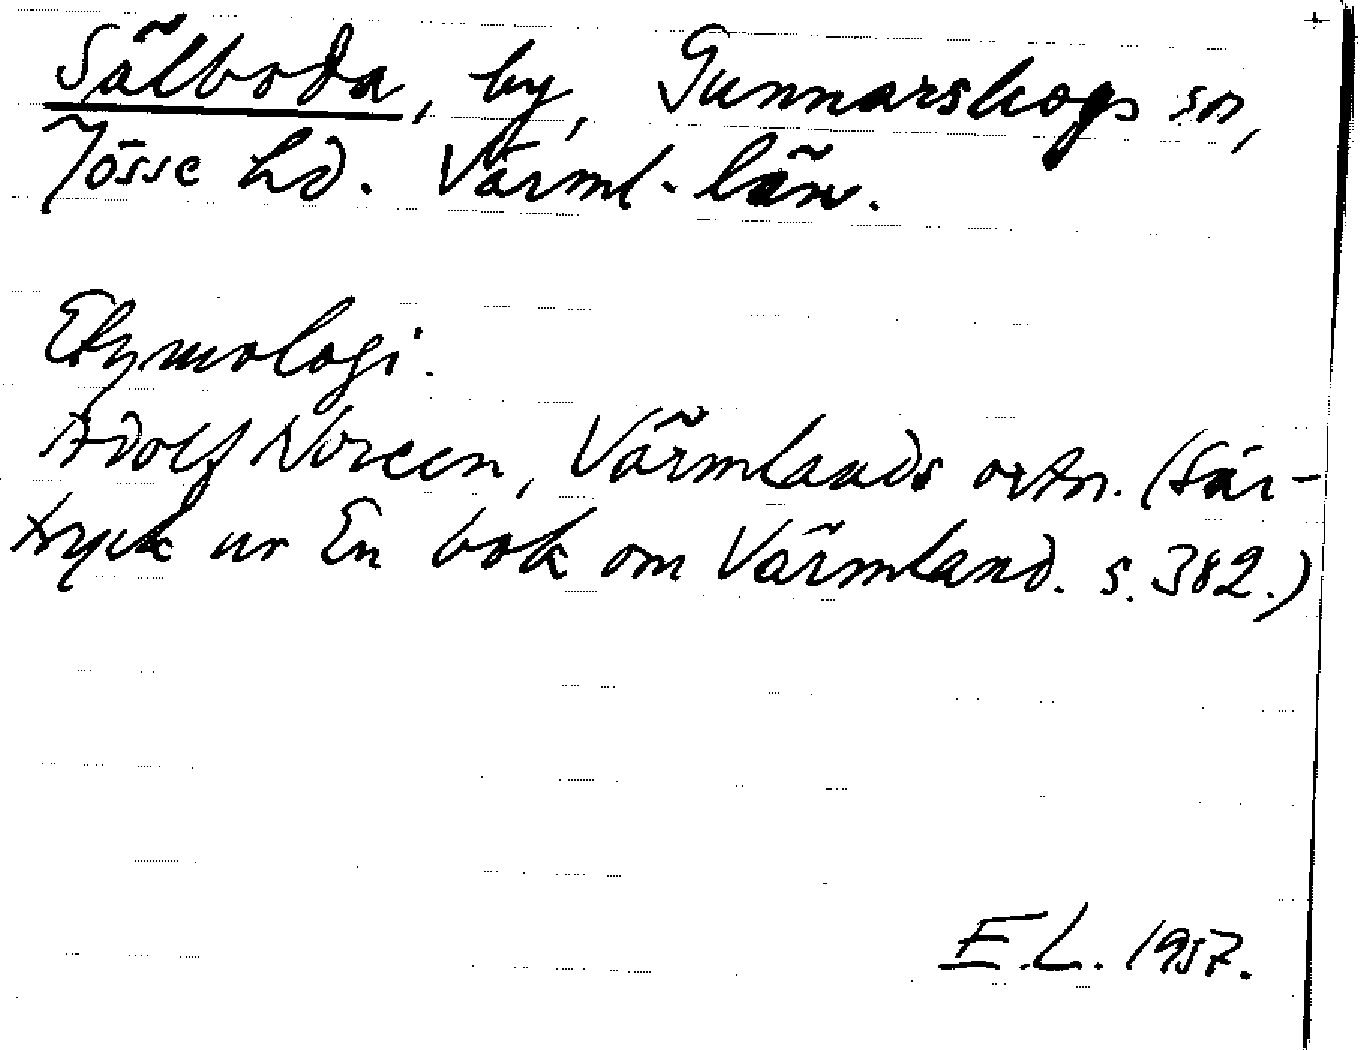 Sälboda, by, Gunnarskogs sn,
Jösse hd. Värml. län.
Etymologi.
Adolf Noreen, Värmlands ortn. (Sär-
tryck ur En bok om Värmland. s. 382.)
E.L. 1957.